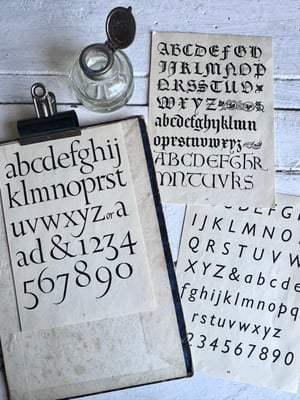 abcdefghij
klmnoprst
uvwxyz or a
ad & 1234
567890
ABCDEFGH
IJKLMNOP
QRSSTUV
WXYZ
abcdefghijklmn
opqrstuvwxyz
ABCDEFGHI
MNTUVRS
DEFG
IJKLMN
QRSTUV
XYZ&abcde
fghijklmnopq
rstuvwxyz
234567890